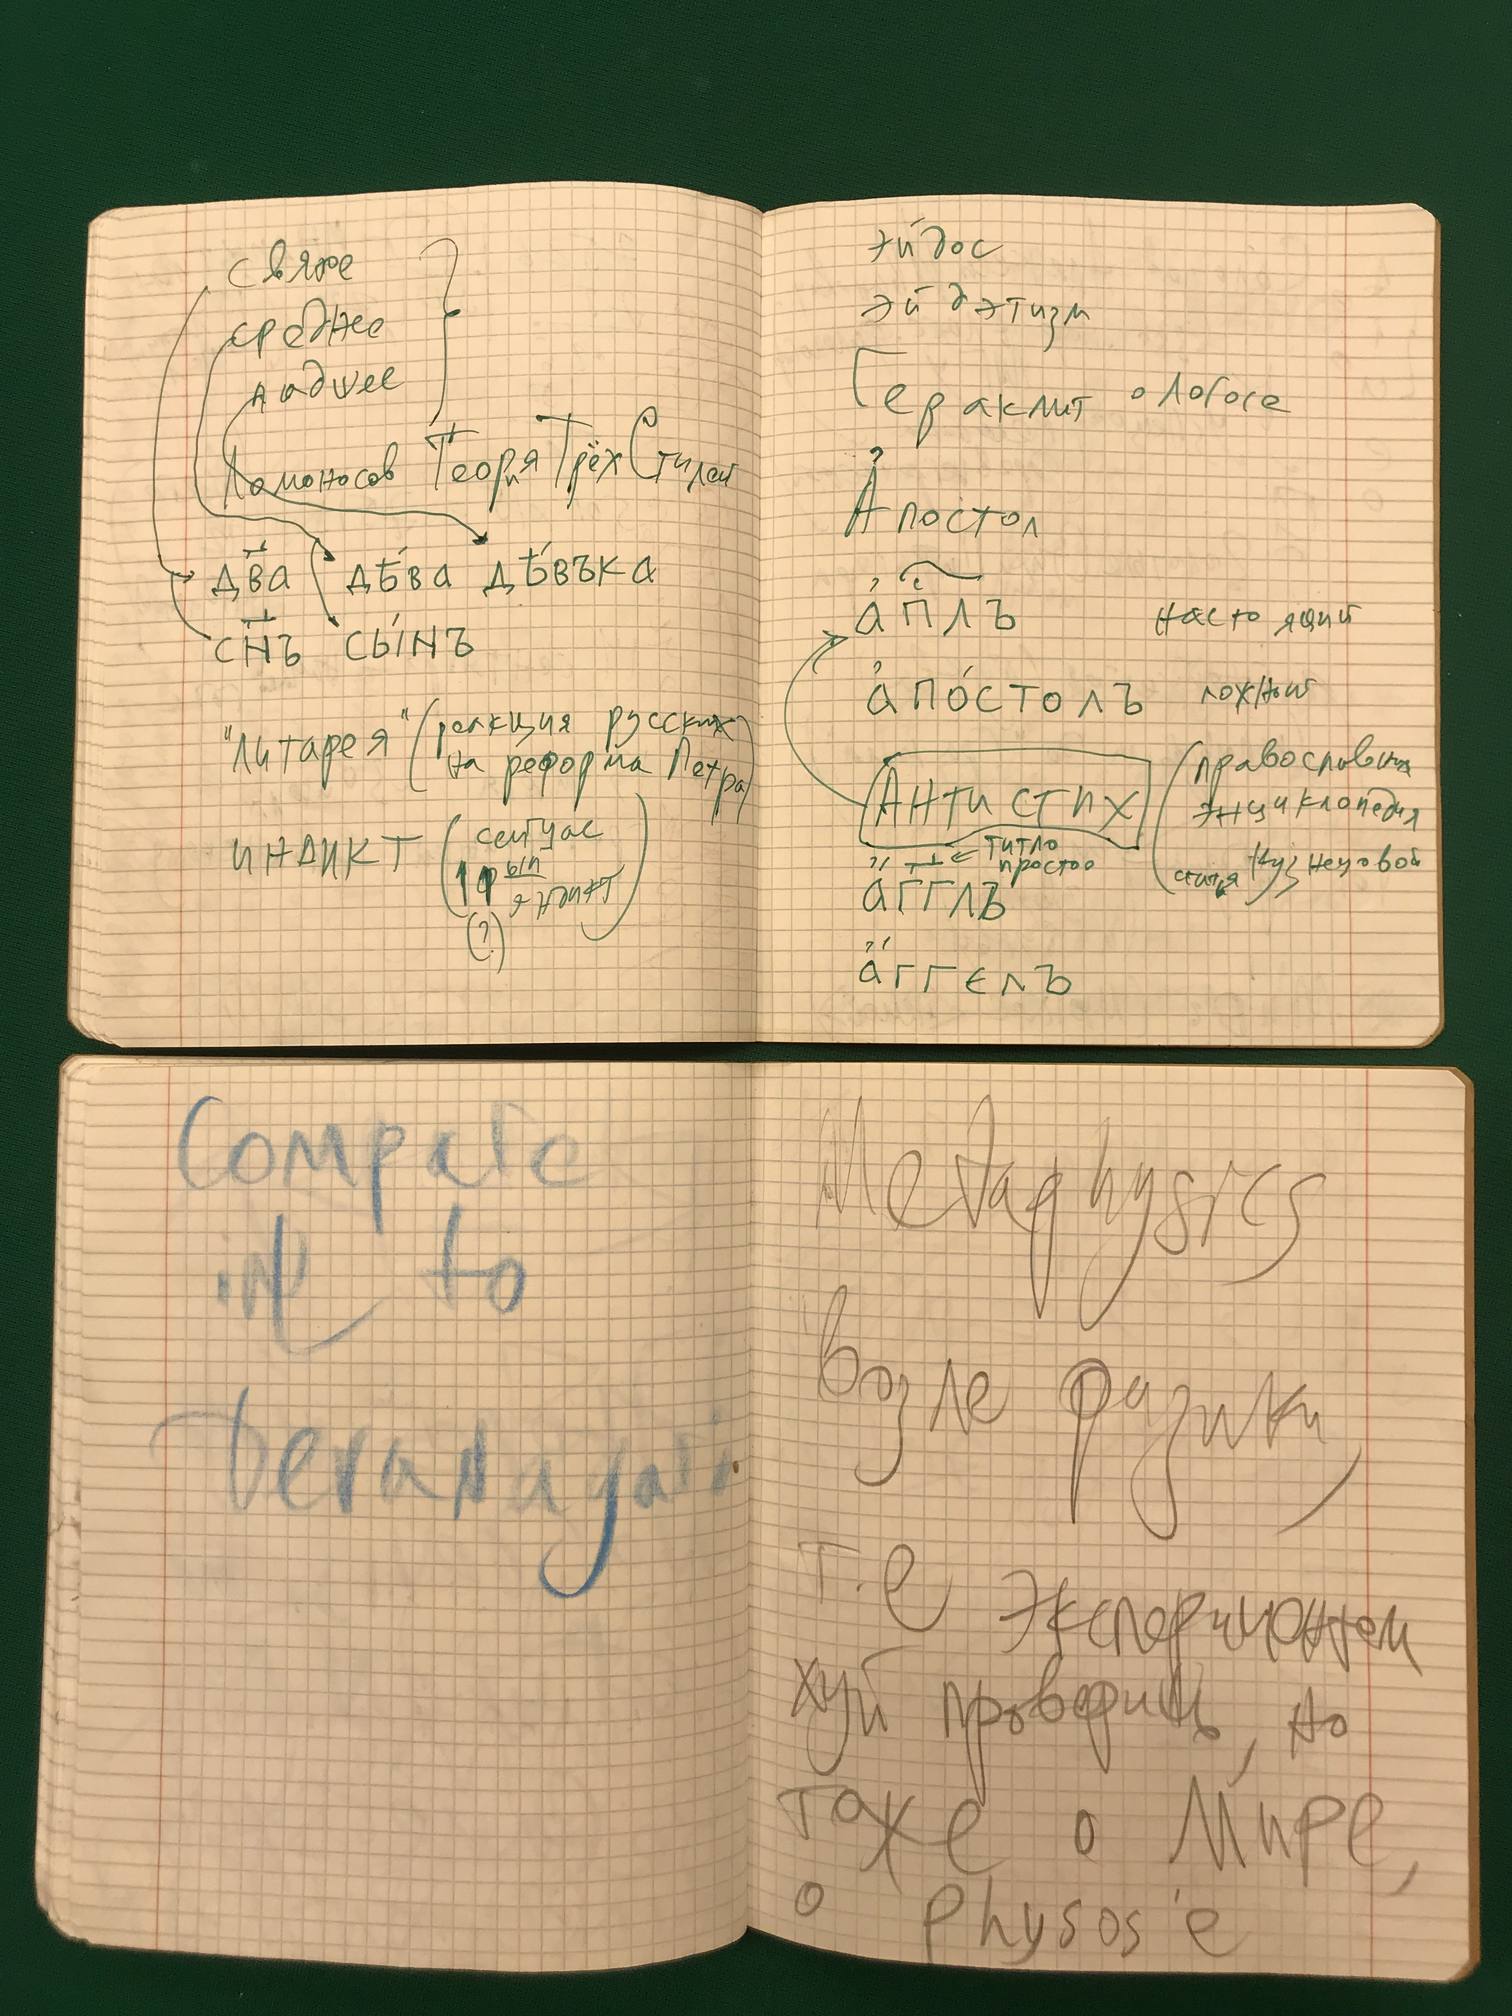 святое
среднее
падшее
Ломоносов Теория Трёх Стилей
дв҃а дѣ́ва дѣ́въка
сн҃ъ сы́нъ
"литарея" (реакция русских
на реформа Петра)
индикт (сейчас
ый
индикт)
(?)
эйдос
эйдэтизм
Гераклит о логосе
А҆постол
а҆пⷭ҇лъ настоящий
а҆по́столъ ложный
Антистих (православная
энциклопедия
статья Кузнецовой
титло
простое
а҆́гг҃лъ
а҆́ггєлъ
Compare
it to
Metaphysics
возле физики,
т.е экспериментом
хуй проверишь, но
тоже о Мире,
о physos'е